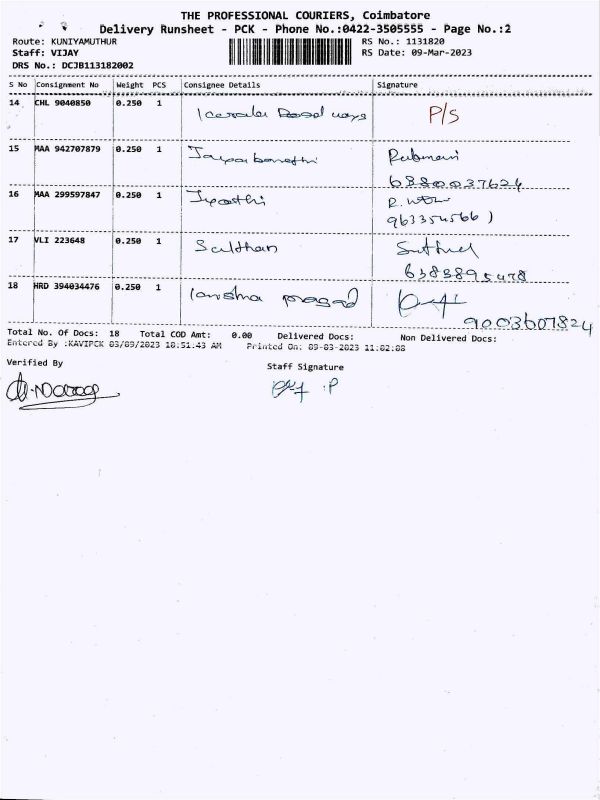 THE PROFESSIONAL COURIERS, Coimbatore
Delivery Runsheet - PCK - Phone No.:0422-3505555 - Page No.:2
Route: KUNIYAMUTHUR RS No.: 1131820
Staff: VIJAY RS Date: 09-Mar-2023
DRS No.: DCJB113182002
S No Consignment No Weight PCS Consignee Details Signature
14 CHL 9040850 0.250 1 P/S
15 MAA 942707879 0.250 1
6380037624
16 MAA 299597847 0.250 1 Jyothi
17 VLI 223648 0.250 1
6383895478
18 HRD 394034476 0.250 1 prasad
9003607824
Total No. Of Docs: 18 Total COD Amt: 0.00 Delivered Docs: Non Delivered Docs:
Entered By :KAVIPCK 03/09/2023 10:51:43 AM Printed On: 09-03-2023 11:02:08
Verified By
Staff Signature